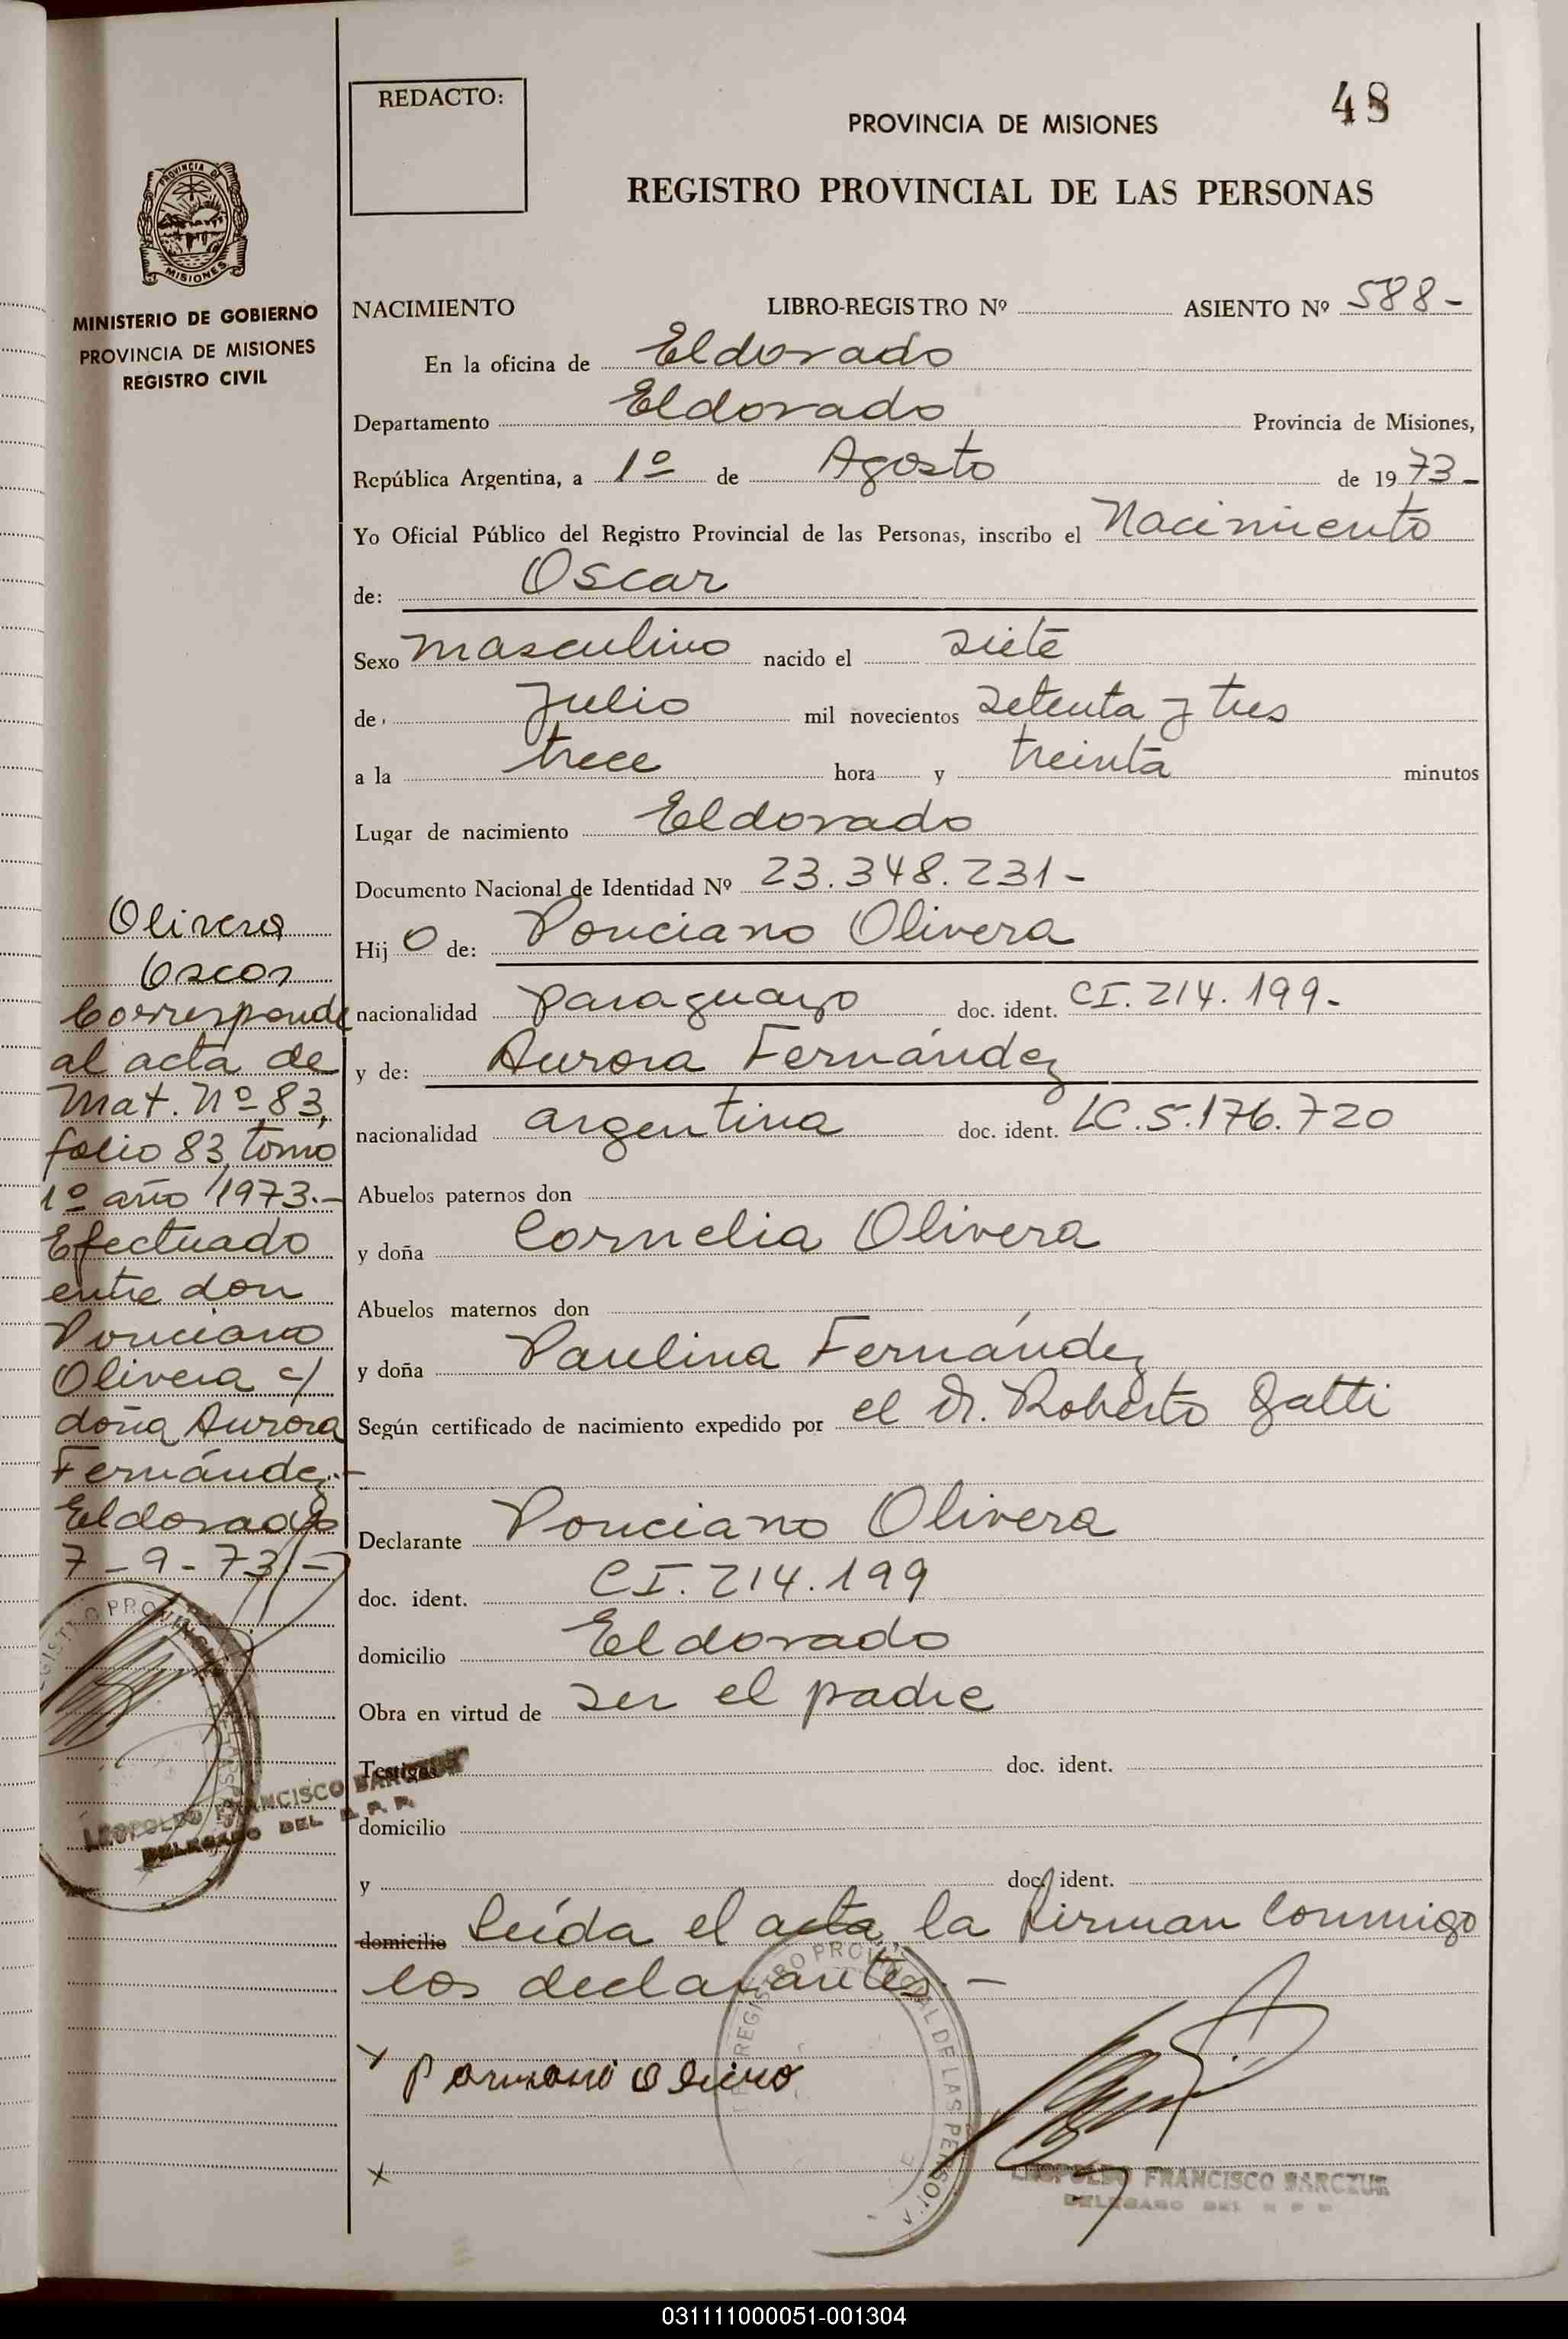 REDACTO:
48
PROVINCIA DE MISIONES
REGISTRO PROVINCIAL DE LAS PERSONAS
PROVINCIA DE
MISIONES
MINISTERIO DE GOBIERNO
PROVINCIA DE MISIONES
REGISTRO CIVIL
NACIMIENTO LIBRO-REGISTRO Nº ASIENTO Nº 588-
En la oficina de Eldorado
Departamento Eldorado Provincia de Misiones,
República Argentina, a 1º de Agosto de 1973-
Yo Oficial Público del Registro Provincial de las Personas, inscribo el Nacimiento
de: Oscar
Sexo masculino nacido el siete
de Julio mil novecientos setenta y tres
a la trece hora y treinta minutos
Lugar de nacimiento Eldorado
Documento Nacional de Identidad Nº 23.348.231-
Hij o de: Ponciano Olivera
nacionalidad paraguayo doc. ident. CI. 214.199-
y de: Aurora Fernández
nacionalidad argentina doc. ident. LC. 5.176.720
Abuelos paternos don
y doña Cornelia Olivera
Abuelos maternos don
y doña Paulina Fernández
Según certificado de nacimiento expedido por el Dr. Roberto Gatti
Declarante Ponciano Olivera
doc. ident. CI. 214.199
domicilio Eldorado
Obra en virtud de ser el padre
Testigos doc. ident.
domicilio
y doc. ident.
domicilio Leída el acta, la firman conmigo
los declarantes.-
x
x
REGISTRO PROVINCIAL DE LAS PERSONAS
LEOPOLDO FRANCISCO BARCZUK
DELEGADO DEL R P P
Olivera
Oscar
Corresponde
al acta de
Mat. Nº 83,
folio 83, tomo
1º año 1973.-
Efectuado
entre don
Ponciano
Olivera c/
doña Aurora
Fernández.-
Eldorado
7-9-73.-
LEOPOLDO FRANCISCO
DELEGADO DEL R. P. P.
031111000051-001304